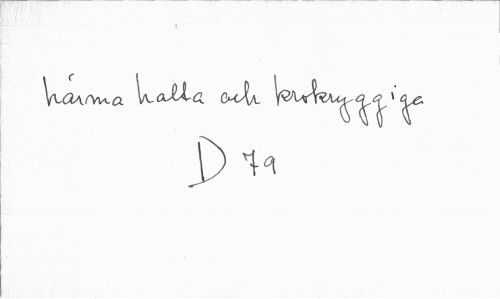 härma halta och krokryggiga
D 79